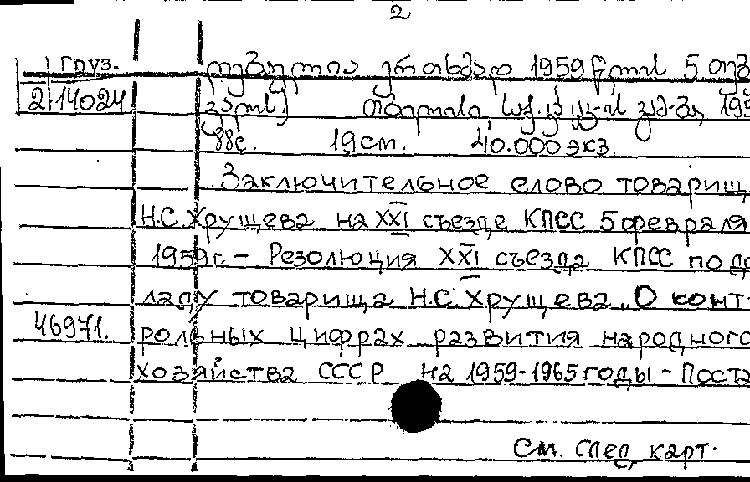 2
Груз. 1959 წლის 5
2 14024
88с. 19см. 40.000 экз.
Заключительное слово товарищ
Н.С. Хрущева на XXI съезде КПСС 5 февраля
1959г. – Резолюция XXI съезда КПСС по д
ладу товарища Н.С. Хрущева „О конт-
46971. рольных цифрах развития народного
хозяйства СССР на 1959-1965 годы – Поста
См. след. карт.